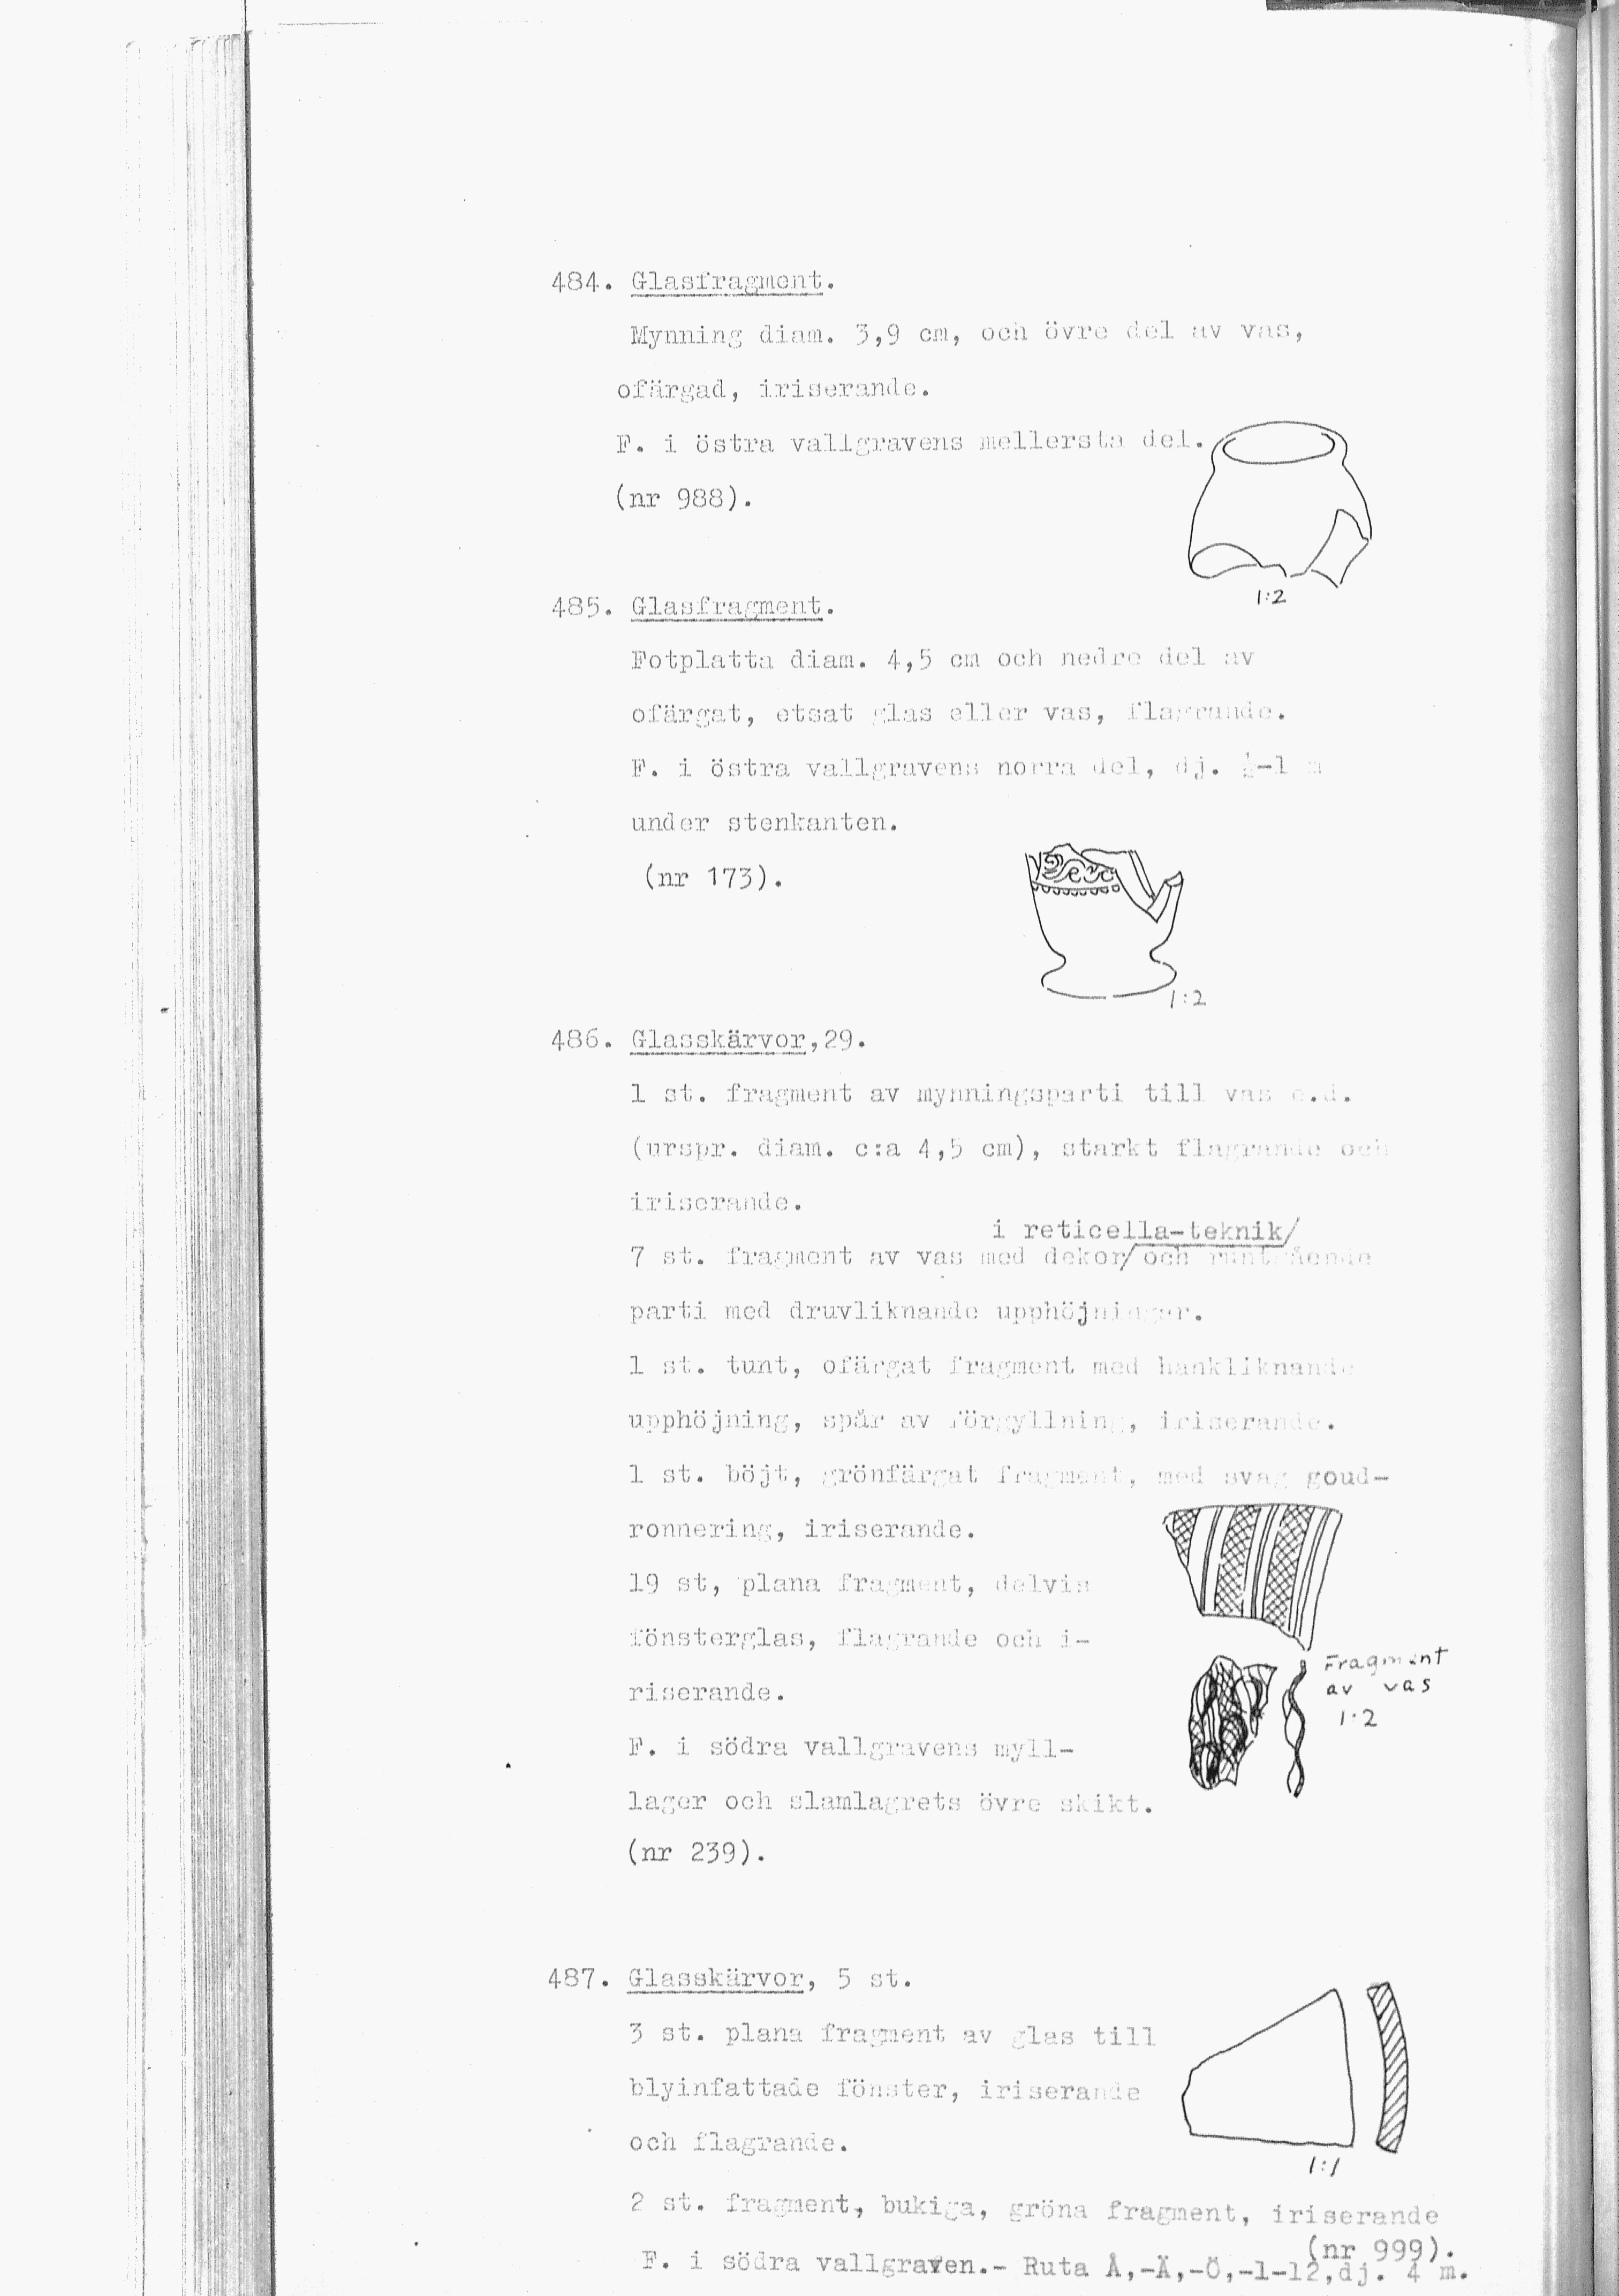 484. Glasfragment.
Mynning diam. 3,9 cm, och övre del av vas,
ofärgad, iriserande.
F. i östra vallgravens mellersta del.
(nr 988).
1:2
485. Glasfragment.
Fotplatta diam. 4,5 cm och nedre del av
ofärgat, etsat glas eller vas, flagrande.
F. i östra vallgravens norra del, dj. ½-1 m
under stenkanten.
(nr 173).
1:2
486. Glasskärvor, 29.
1 st. fragment av mynningsparti till vas e.d.
(urspr. diam. c:a 4,5 cm), starkt flagrande och
iriserande.
i reticella-teknik/
7 st. fragment av vas med dekor/ och runtgående
parti med druvliknande upphöjningar.
1 st. tunt, ofärgat fragment med hankliknande
upphöjning, spår av förgyllning, iriserande.
1 st. böjt, grönfärgat fragment, med svag goud-
ronnering, iriserande.
19 st, plana fragment, delvis
fönsterglas, flagrande och i-
riserande.
Fragment
av vas
1:2
F. i södra vallgravens myll-
lager och slamlagrets övre skikt.
(nr 239).
487. Glasskärvor, 5 st.
3 st. plana fragment av glas till
blyinfattade fönster, iriserande
och flagrande.
1:1
2 st. fragment, bukiga, gröna fragment, iriserande
(nr 999).
F. i södra vallgraven.- Ruta Å,-Ä,-Ö,-1-12,dj. 4 m.